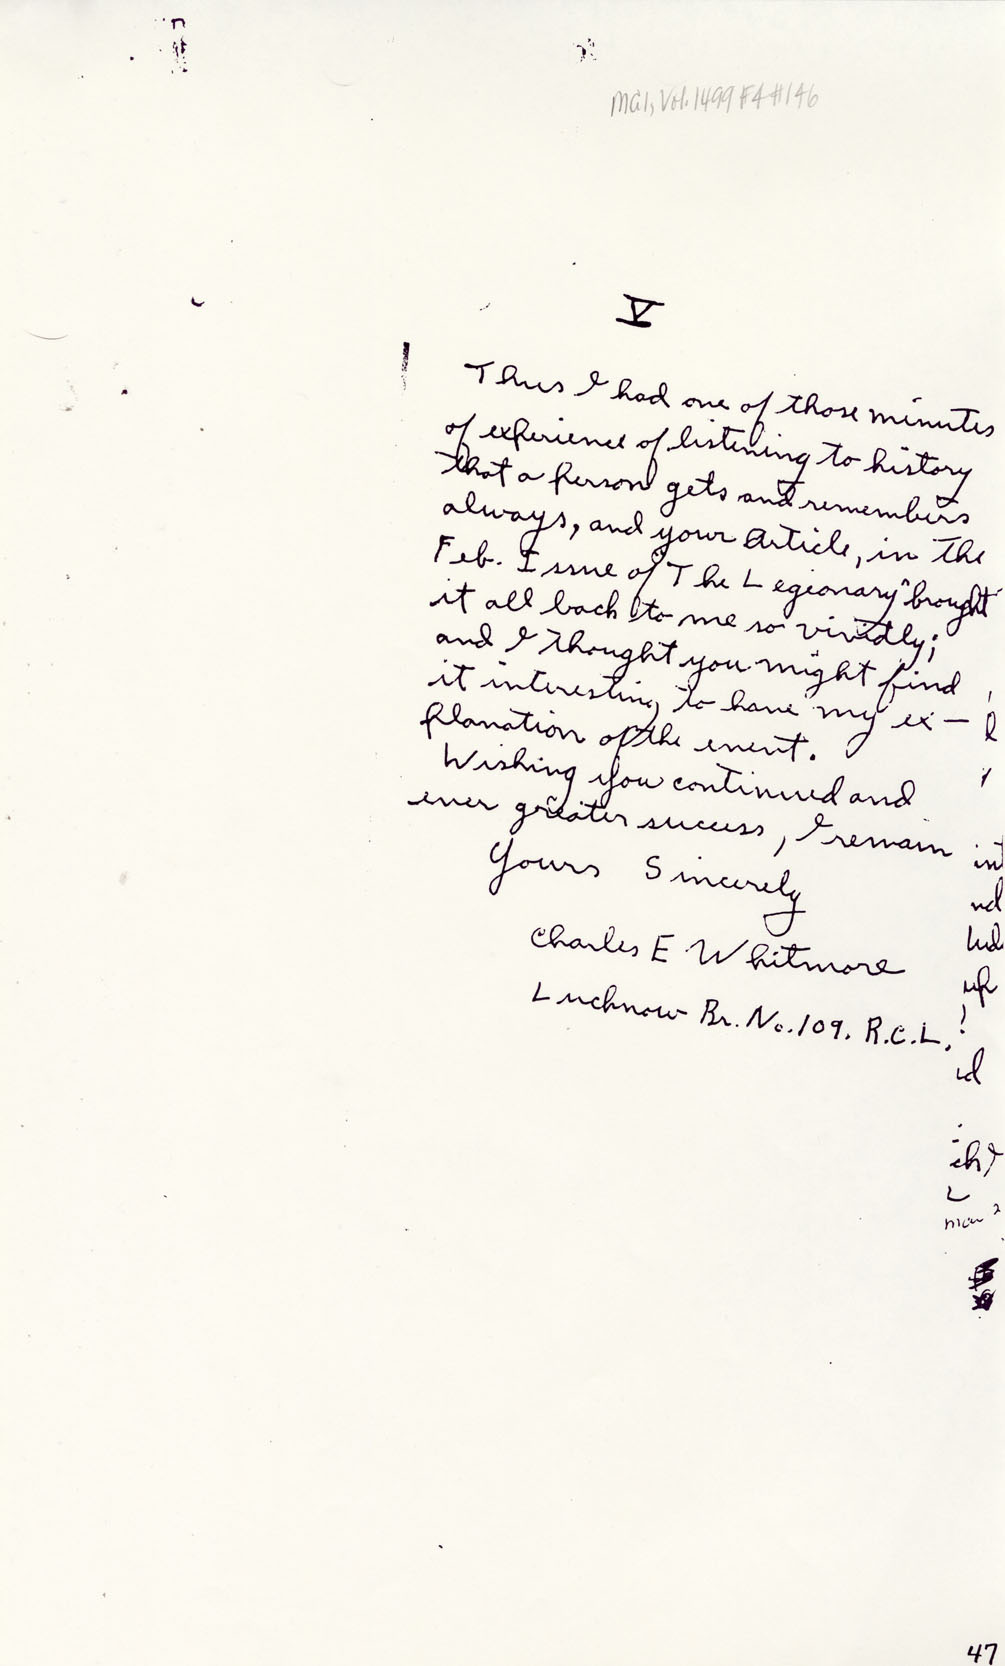 MG1, Vol. 1499 F4 #146
V
Thus I had one of those minutes
of experience of listening to history
that a person gets and remembers
always, and your Article, in The
Feb. Issue of The Legionary" brought
it all back to me so vividly;
and I thought you might find
it interesting to have my ex-
planation of the event.
Wishing you continued and
ever greater success, I remain
Yours Sincerely
Charles E. Whitmore
Lucknow Br. No. 109. R.C.L.
47